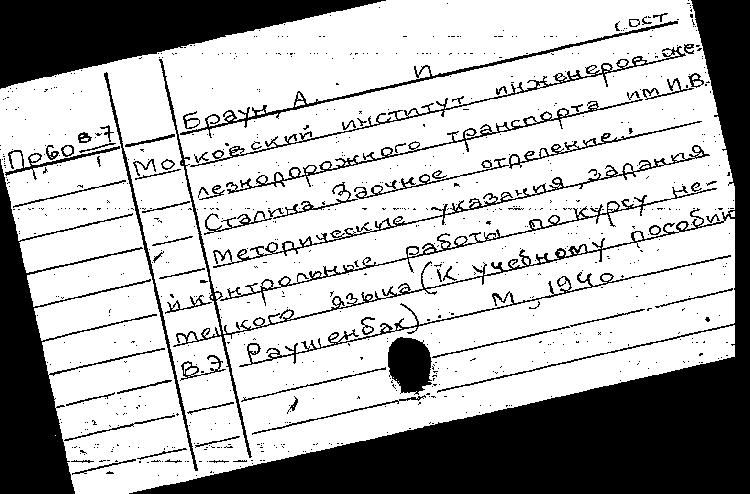 сост
Браун, А. П.
Пр60 В-7
1
Московский институт инженеров же-
лезнодорожного транспорта им И.В.
Сталина. Заочное отделение.
Методические указания, задания
и контрольные работы по курсу не-
мецкого языка (к учебному пособию
В.Э Раушенбах)... М, 1940.